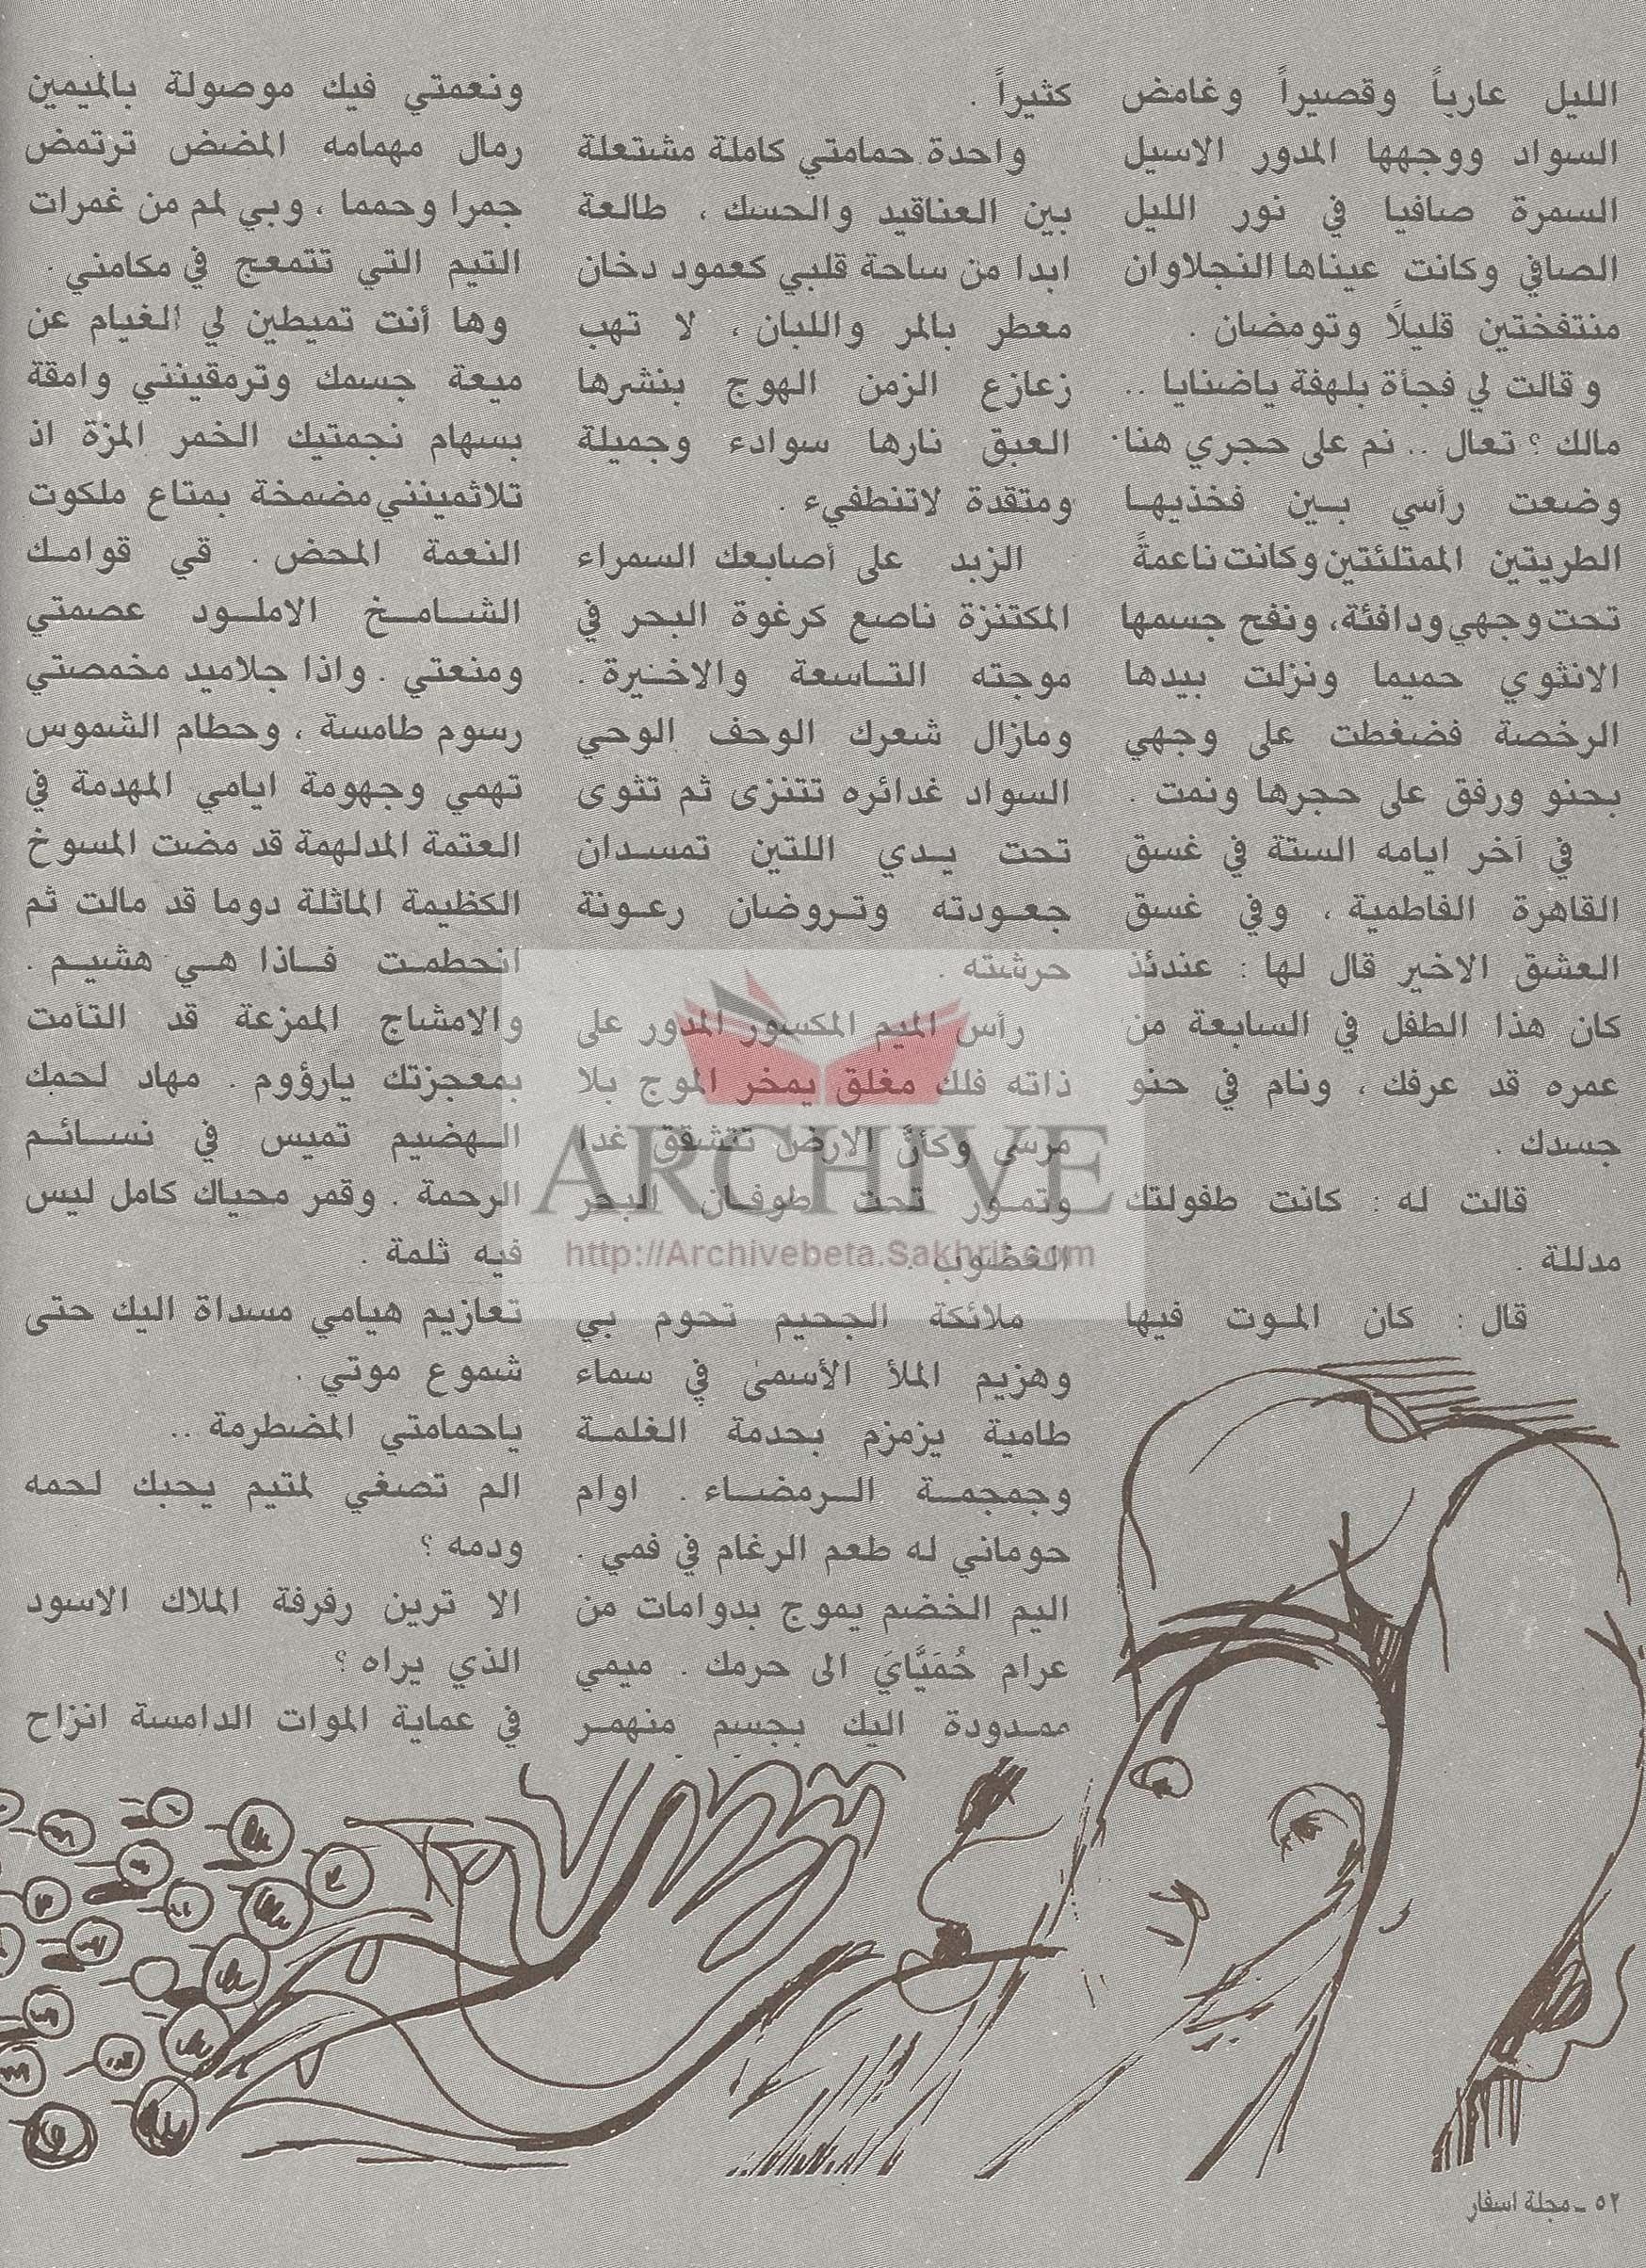 الليل عارباً وقصيراً وغامض
السواد ووجهها المدور الاسيل
السمرة صافيا في نور الليل
الصافي وكانت عيناها النجلاوان
منتفختين قليلاً وتومضان .
وقالت لي فجأة بلهفة ياضنايا ..
مالك ؟ تعال .. نم على حجري هنا .
وضعت رأسي بين فخذيها
الطريتين الممتلئتين وكانت ناعمةً
تحت وجهي ودافئة، ونفح جسمها
الانثوي حميما ونزلت بيدها
الرخصة فضغطت على وجهي
بحنو ورفق على حجرها ونمت .
في آخر ايامه الستة في غسق
القاهرة الفاطمية ، وفي غسق
العشق الاخير قال لها : عندئذ
كان هذا الطفل في السابعة من
عمره قد عرفك ، ونام في حنو
جسدك .
قالت له : كانت طفولتك
مدللة .
قال : كان الموت فيها
كثيراً .
واحدة حمامتي كاملة مشتعلة
بين العناقيد والحسك ، طالعة
ابدا من ساحة قلبي كعمود دخان
معطر بالمر واللبان ، لا تهب
زعازع الزمن الهوج بنشرها
العبق نارها سوادء وجميلة
ومتقدة لاتنطفيء .
الزبد على أصابعك السمراء
المكتنزة ناصع كرغوة البحر في
موجته التاسعة والاخيرة .
ومازال شعرك الوحف الوحي
السواد غدائره تتنزى ثم تثوى
تحت يدي اللتين تمسدان
جعودته وتروضان رعونة
حرشته .
رأس الميم المكسور المدور على
ذاته فلك مغلق يمخر الموج بلا
مرسى وكأنَّ الارض تتشقق غدا
وتمور تحت طوفان البحر
الغضوب .
ملائكة الجحيم تحوم بي
وهزيم الملأ الأسمىٰ في سماء
طامية يزمزم بحدمة الغلمة
وجمجمة الرمضاء . اوام
حوماني له طعم الرغام في فمي .
اليم الخضم يموج بدوامات من
عرام حُمَيَّايَ الى حرمك . ميمي
ممدودة اليك بجسم منهمر
ونعمتي فيك موصولة بالميمين
رمال مهمامه المضض ترتمض
جمرا وحمما ، وبي لمم من غمرات
التيم التي تتمعج في مكامني .
وها أنت تميطين لي الغيام عن
ميعة جسمك وترمقينني وامقة
بسهام نجمتيك الخمر المزة اذ
تلاثمينني مضمخة بمتاع ملكوت
النعمة المحض . قي قوامك
الشامخ الاملود عصمتي
ومنعتي . واذا جلاميد مخمصتي
رسوم طامسة ، وحطام الشموس
تهمي وجهومة ايامي المهدمة في
العتمة المدلهمة قد مضت المسوخ
الكظيمة الماثلة دوما قد مالت ثم
انحطمت فاذا هي هشيم .
والامشاج الممزعة قد التأمت
بمعجزتك يارؤوم . مهاد لحمك
الهضيم تميس في نسائم
الرحمة . وقمر محياك كامل ليس
فيه ثلمة .
تعازيم هيامي مسداة اليك حتى
شموع موتي .
ياحمامتي المضطرمة ..
الم تصغي لمتيم يحبك لحمه
ودمه ؟
الا ترين رفرفة الملاك الاسود
الذي يراه ؟
في عماية الموات الدامسة انزاح
ARCHIVE
http://Archivebeta.Sakhrit.com
٥٢ - مجلة اسفار